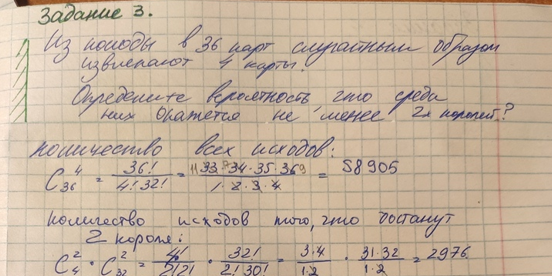 Задание 3.
Из колоды в 36 карт случайным образом
извлекают 4 карты.
Определите вероятность, что среди
них окажется не менее 2х королей?
количество всех исходов:
C₃₆⁴ = 36!/(4! 32!) = (33·34·35·36)/(1·2·3·4) = 58905
количество исходов того, что достанут
2 короля:
C₄² · C₃₂² = 4!/(2!2!) · 32!/(2! 30!) = (3·4)/(1·2) · (31·32)/(1·2) = 2976